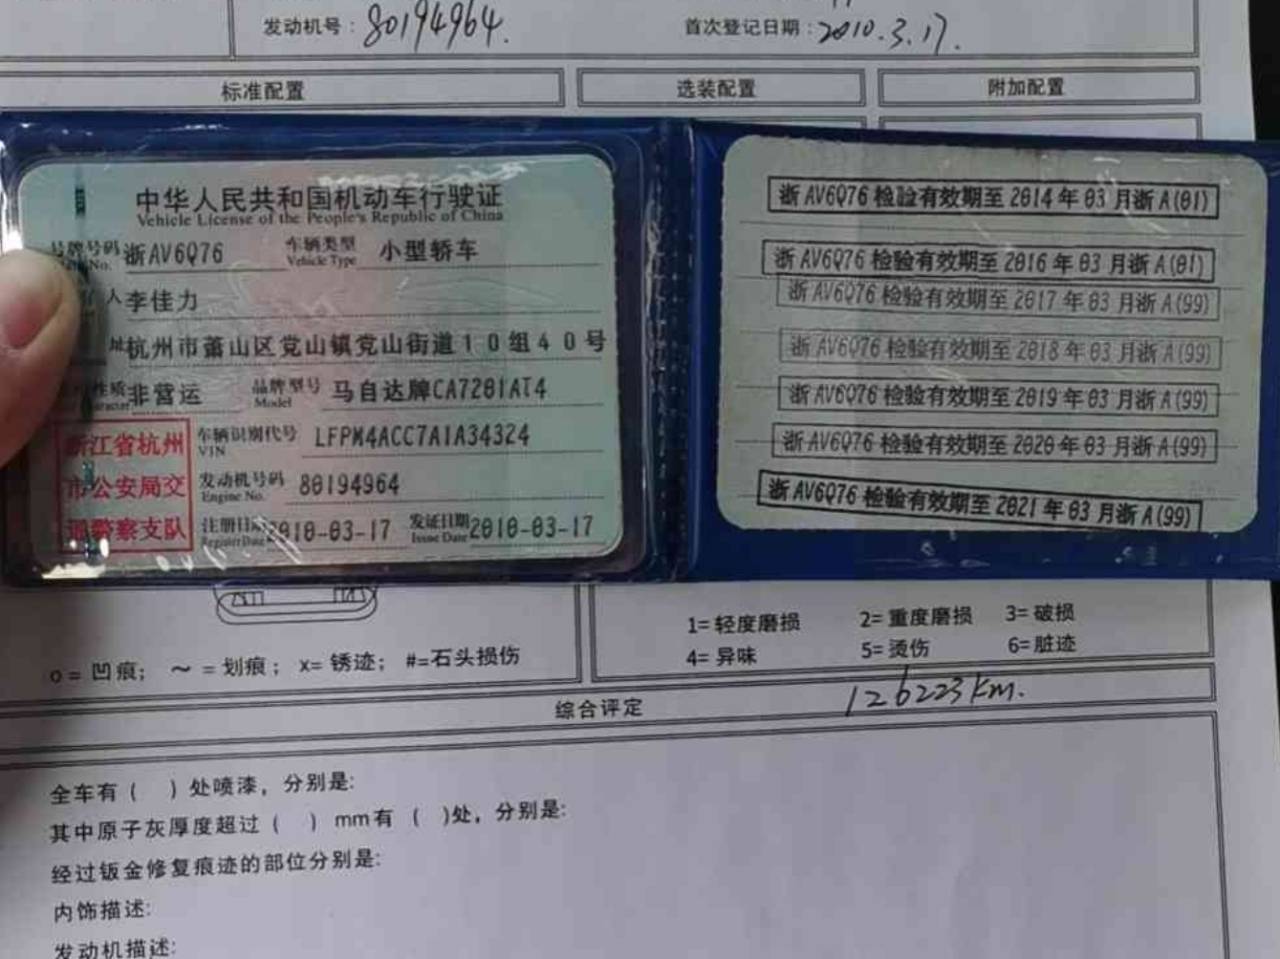 发动机号：80194964.
首次登记日期：2010.3.17.
标准配置
选装配置
附加配置
中华人民共和国机动车行驶证
Vehicle License of the People's Republic of China
号牌号码 浙AV6Q76 车辆类型 小型轿车
No. Vehicle Type
人 李佳力
址 杭州市萧山区党山镇党山街道10组40号
性质 非营运 品牌型号 马自达牌CA7201AT4
Model
浙江省杭州
市公安局交
通警察支队
车辆识别代号 LFPM4ACC7A1A34324
VIN
发动机号码 80194964
Engine No.
注册日期 2010-03-17 发证日期 2010-03-17
Register Date Issue Date
浙AV6Q76 检验有效期至 2014年03月浙A(01)
浙AV6Q76 检验有效期至 2016年03月浙A(01)
浙AV6Q76 检验有效期至 2017年03月浙A(99)
浙AV6Q76 检验有效期至 2018年03月浙A(99)
浙AV6Q76 检验有效期至 2019年03月浙A(99)
浙AV6Q76 检验有效期至 2020年03月浙A(99)
浙AV6Q76 检验有效期至 2021年03月浙A(99)
o=凹痕； ～=划痕； x=锈迹； #=石头损伤
1=轻度磨损 2=重度磨损 3=破损
4=异味 5=烫伤 6=脏迹
综合评定
126223km.
全车有（ ）处喷漆，分别是:
其中原子灰厚度超过（ ）mm有（ )处，分别是:
经过钣金修复痕迹的部位分别是:
内饰描述:
发动机描述: